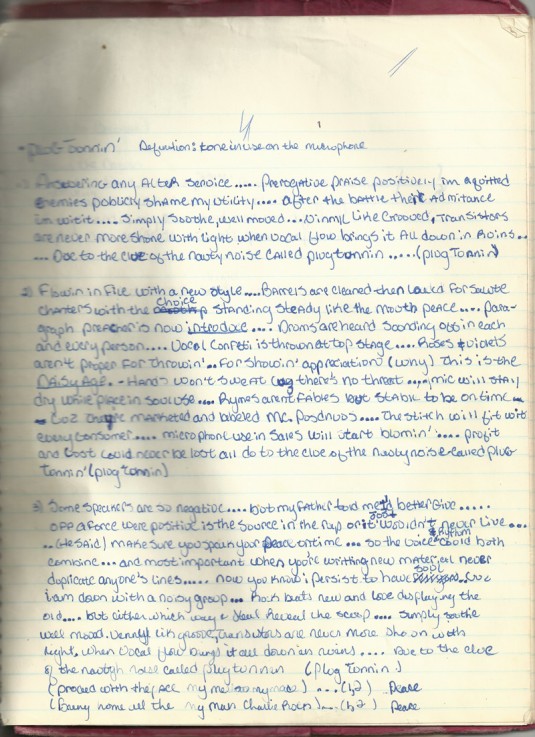 4
1
"Plug Tonnin' Definition: tone in use on the microphone
1) Answering any Alter service..... Prerogative praise positively im aquitted
Enemies publicly shame my utility.... after the battle they Admitance
im wit it.... Simply Soothe, well moved... Vinnyl Like Grooved, Transistors
are never more shone with Light when vocal flow brings it All down in Roins..
.... Due to the clue of the nauty noise called plug tonnin .....(plug Tonnin)
2) Flowin in File with a new style....Barrels are cleaned then loaded for Salute
Charters with the choice standing steady like the mouth peace.... Para-
graph preacher is now introduce.... Drums are heard sounding off in each
and every person.... Vocal Confeti is thrown at top stage.... Roses & violets
aren't proper for Throwin'.. For Showin' appreciation (Why) This is the
DAISY Age.. Hands won't sweat cuz there's no threat ....mic will stay
dry while place in soul use.... Rhymes arent Fables but stable to be on time..
Coz they're marketed and labeled Mc. Posdnuos.... The stitch will fit wit
every consumer.... microphone use in sales will start bloomin'.... profit
and Cost could never be lost all do to the clue of the nauty noise called plug
Tonnin' (plug Tonnin)
3) Some speakers are so negative.... but my Father told me its better Give.....
Off A force were positive is the source in the Rap or it just wouldn't never Live...
.. (He Said) Make sure you speak your peace on time... so the voice & Rythm could both
combine... and most important when you're writting new material never
duplicate anyone's lines..... now you know i persist to have soul Cuz
i am down with a noisy group... Rock beats new and love displaying the
old.... but either which way I shall Reveal the scoop.... simply soothe
well mood. Vennyl like groove, transistors are never more shown with
light, when Vocal flow brings it all down in ruins.... Due to the clue
of the naughty noise called plug tonnin (Plug Tonnin)
(proceed with the ACE my my mase) ....(h2) Peace
(being name all the my man Charlie Rock)...(h2) Peace